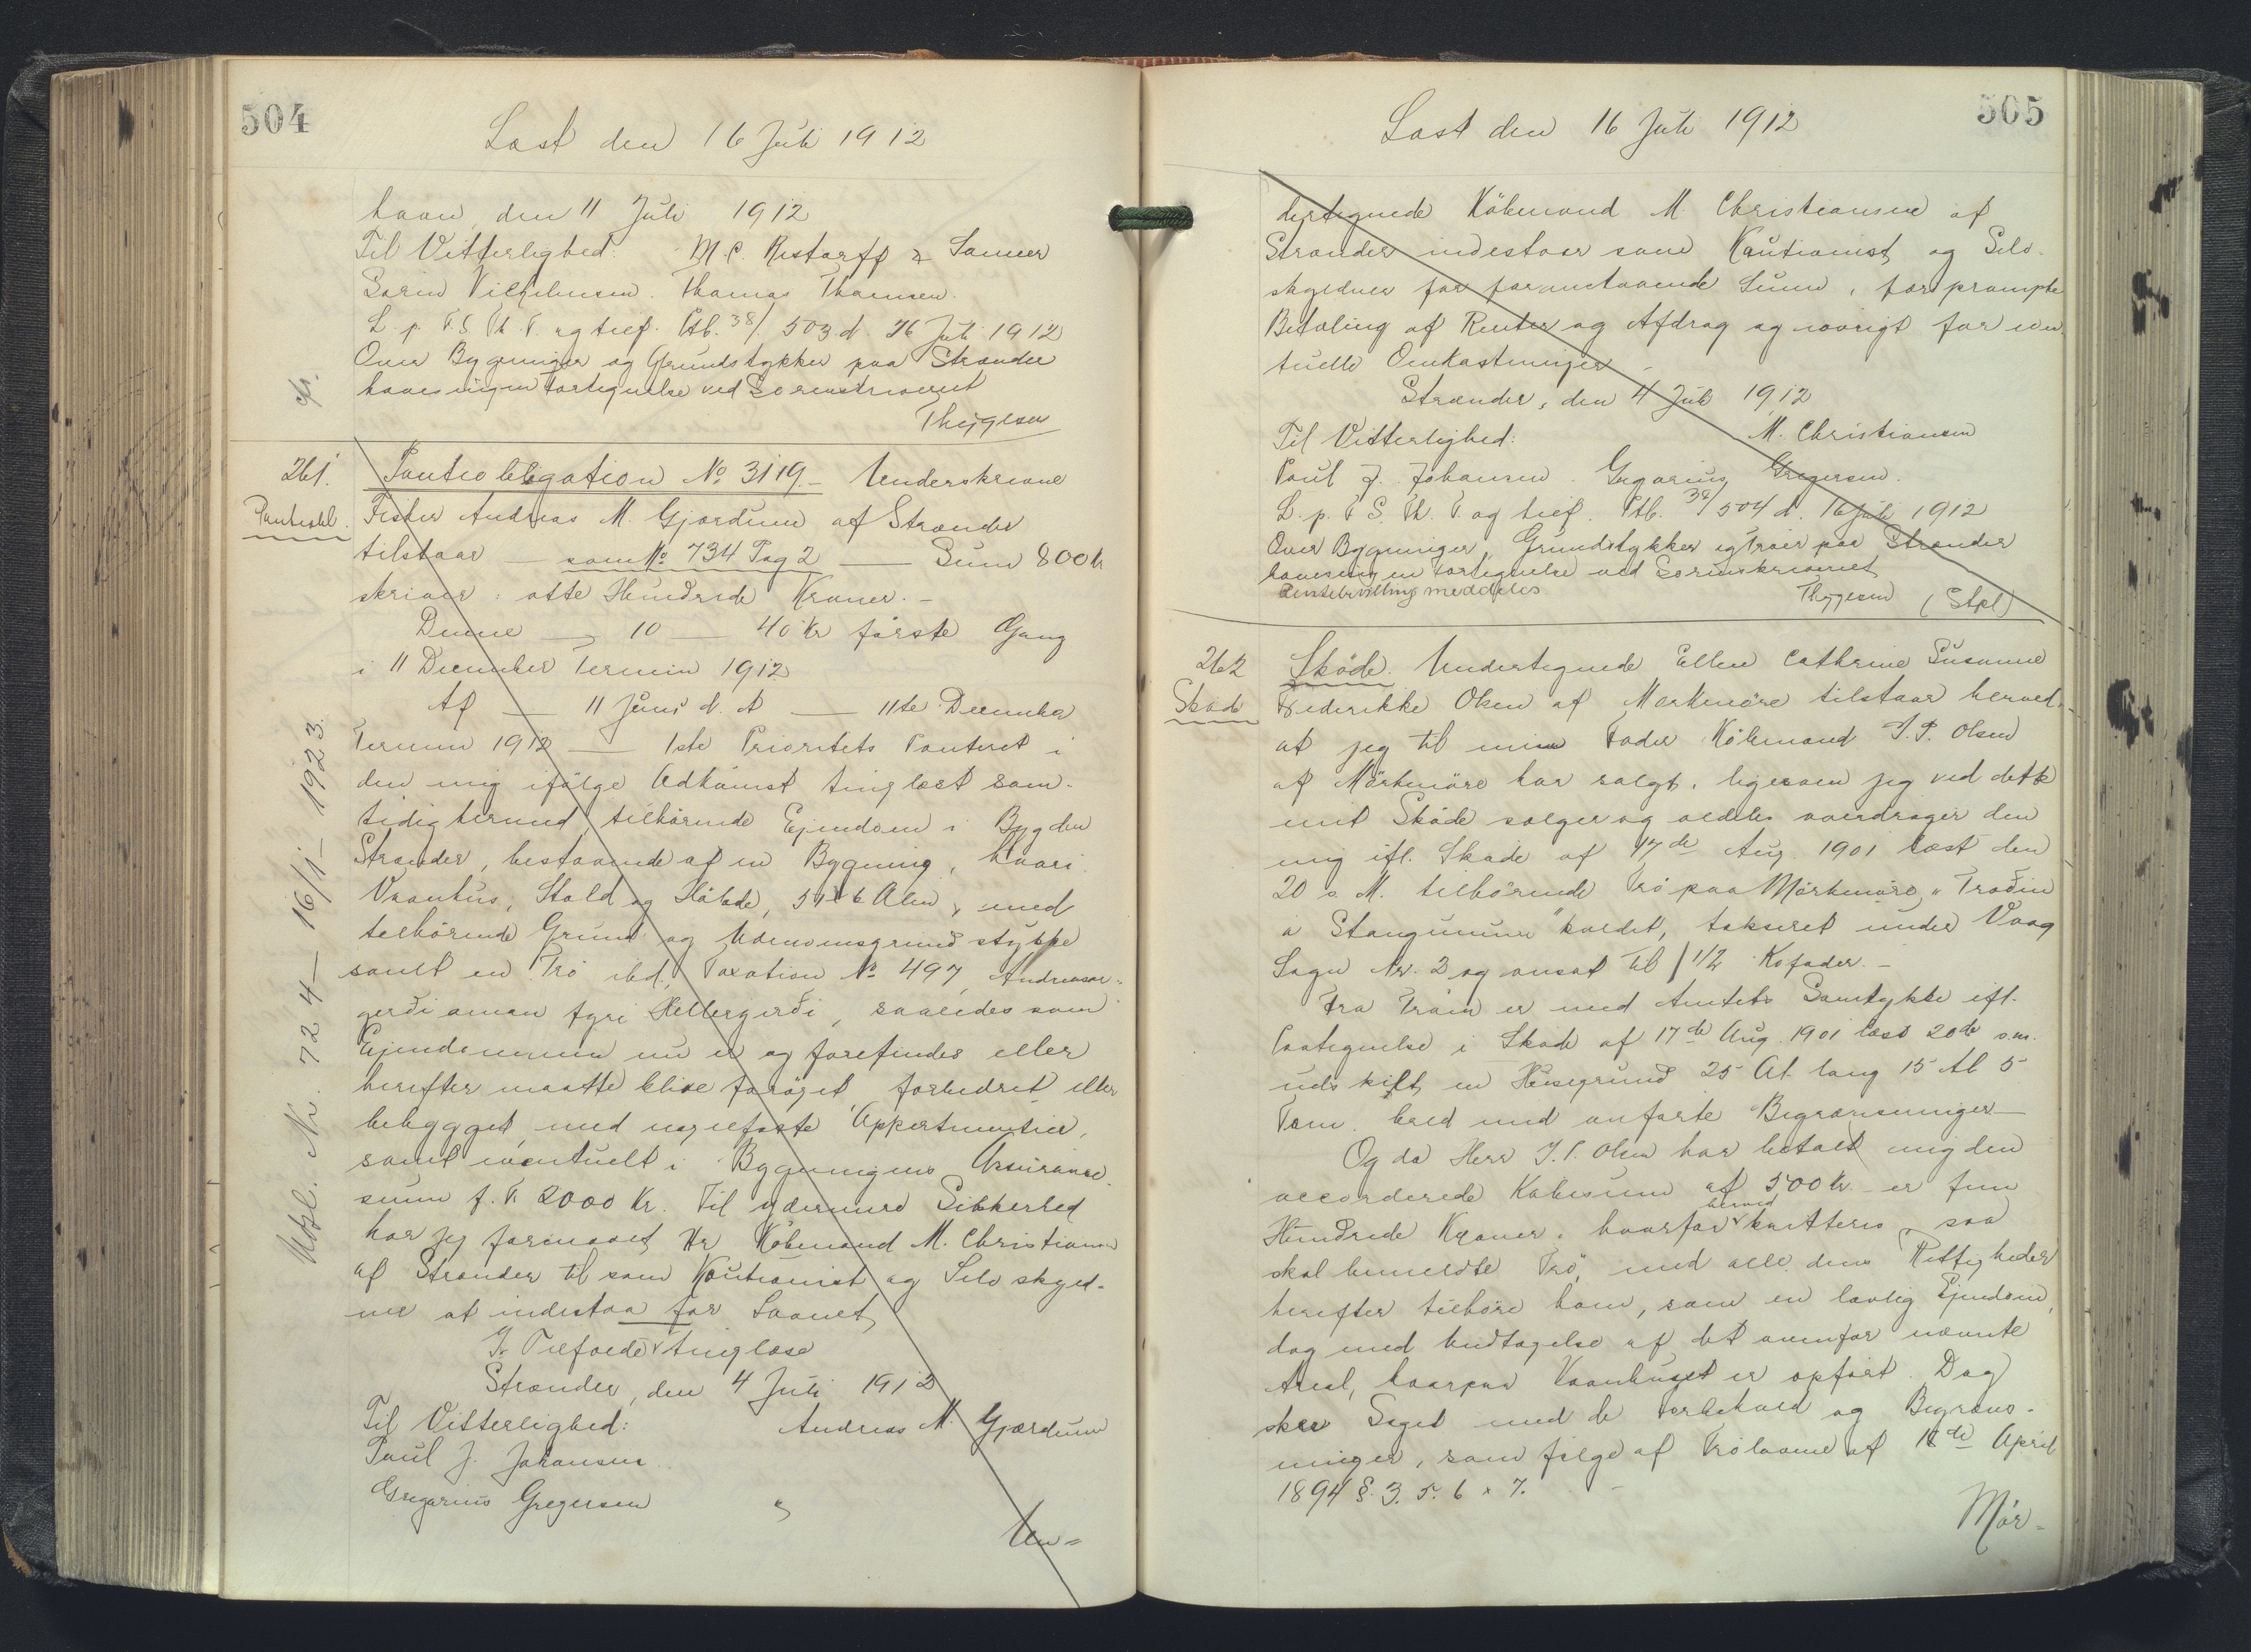 504
Læst den 16 Juli 1912
havn, den 11 Juli 1912
Til Vitterlighed: M. C. Restorff & Sönner
Sorin Vilhelmsen. Thomas Thomsen.
L. p. F. S. Th. T. og tief. Ptb. 38/503 d. 16 Juli 1912
Over Bygninger og Grundstykker paa Strænder
haves ingen Fortegnelse ved Sorenskriveriet
Thygesen
261.
Pantobl.
Pantiobligation No 3119. Underskrevne
Fisker Andreas M. Gjærdum af Strænder
tilstaar — som No 734 Pag 2 — Sum 800 Kr
skriver: otte Hundrede Kroner. —
Denne — 10 — 40 Kr første Gang
i 11 December Termin 1912
Af — 11 Juni d. A — 11te December
Termin 1912 — 1ste Prioritets Panteret i
den mig ifølge Adkomst tinglæst sam-
tidig hermed tilhørende Ejendom i Bygden
Strænder, bestaaende af en Bygning, hvori
Vaanhus, Stald og Hölade, 51 x 6 Alen, med
tilhørende Grund og Udenomsgrundstykke
samt en Trö ibd., Taxation No 497, Andreasar-
gerði oman fyri Hellergerði, saaledes som
Ejendommen nu er og forefindes eller
herefter maatte blive forøget forbedret eller
bebygget, med nagelfaste Appertinentier,
samt eventuelt i Bygningens Assurance
sum f. T. 2000 Kr. Til ydermere Sikkerhed
har jeg formaaet Hr Købmand M. Christiansen
af Strænder til som Kautionist og Selvskyld-
ner at indestaa for Laanet
I Tilfælde tinglæse
Strænder, den 4 Juli 1912
Til Vitterlighed: Andreas M. Gjærdum
Poul J. Johansen
Gregorius Gregersen
Un-
Udsl. Nr. 724 — 16/1 — 1923.
505
Læst den 16 Juli 1912
dertegnede Köbmand M. Christiansen af
Strænder indestaar som Kautionist og Selv-
skyldner for foranstaaende Sum, for prompte
Betaling af Renter og Afdrag og iøvrigt for even-
tuelle Omkostninger —
Strænder, den 4 Juli 1912
Til Vitterlighed: M. Christiansen
Poul J. Johansen. Gregorius Gregersen.
L. p. F. S. Th. T. og tief. Ptb. 38/504 d. 16 Juli 1912
Over Bygninger, Grundstykker og Tröer paa Strænder
haves ingen Fortegnelse ved Sorenskriveriet
Rentebevilling meddeles Thygesen (Stpl)
262
Skøde
Skøde. Undertegnede Ellen Cathrine Susanne
Frederikke Olsen af Mørkenöre tilstaar herved,
at jeg til min Fader Købmand J. P. Olsen
af Mörkenöre har solgt, ligesom jeg ved dette
mit Skøde sælger og aldeles overdrager den
mig ifl. Skøde af 17de Aug. 1901 læst den
20 s. M. tilhørende Trö paa Mörkenöre, "Traðin
á Stangunum" kaldet, takseret under Vaag
Sogn Nr. 2 og ansat til 1 1/2 Kofoder. —
Fra Tröen er med Amtets Samtykke ifl.
Paategnelse i Skøde af 17de Aug. 1901 læst 20de s.m.
udskilt en Husegrund 25 Al. lang 15 Al 5
Tom. bred med anførte Begrænsninger —
Og da Herr J. P. Olsen har betalt mig den
accorderede Købesum af 500 Kr. er fem
Hundrede Kroner, hvorfor herved kvitteres, saa
skal bemeldte Trö med alle dens Rettigheder
herefter tilhøre ham, som en lovlig Ejendom,
dog med Undtagelse af det ovenfor nævnte
Areal, hvorpaa Vaanhuset er opført. Dog
sker Salget med de Forbehold og Begræns-
ninger, som følge af Trölovene af 18de April
1894 §. 3. 5. 6 & 7. —
Mör-